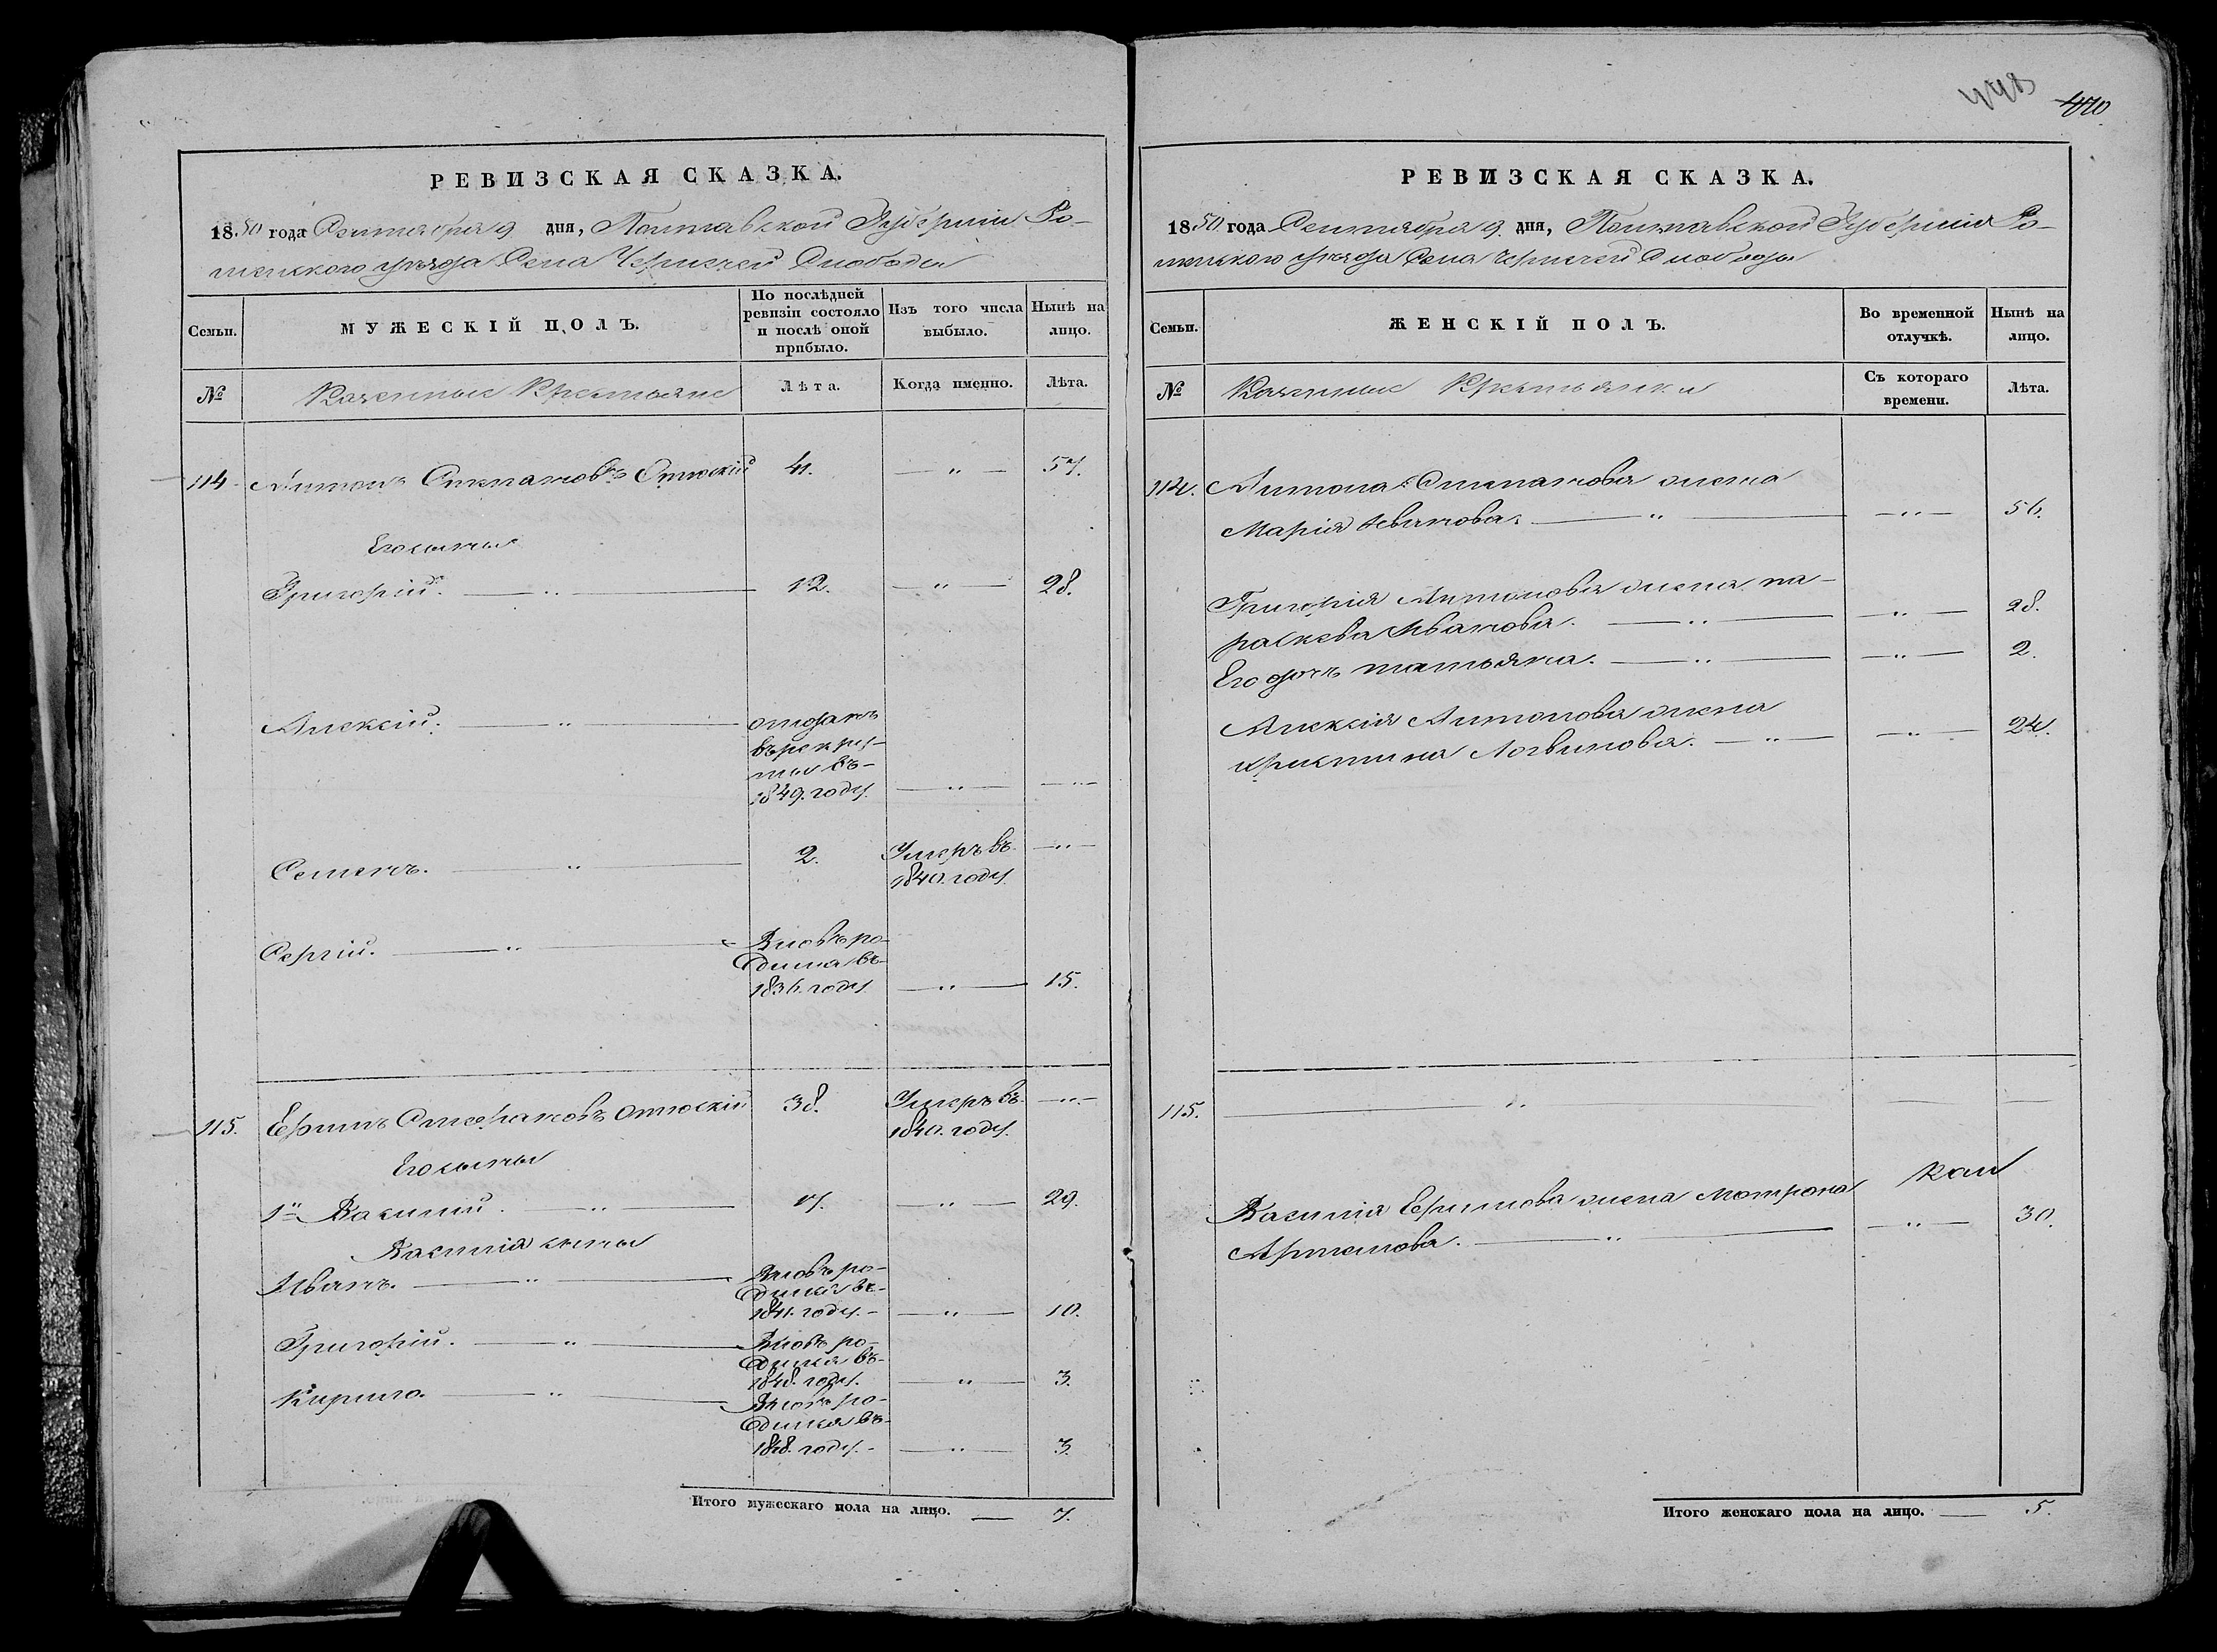 РЕВИЗСКАЯ СКАЗКА.
1850 года Сентября 9 дня, Полтавской Губерніи Ро-
менскаго уѣзда Села Чернечей Слободы
Семьи.
МУЖЕСКІЙ ПОЛЪ.
По послѣдней
ревизіи состояло
и послѣ оной
прибыло.
Изъ того числа
выбыло.
Нынѣ на
лицо.
№
Казенные Крестьяне
Лѣта.
Когда именно.
Лѣта.
114. Антонъ Степановъ 41. — " — 57.
Его сыны
Григорій. — " — 12. — " — 28.
Алексій. — " — отданъ
въ рекру-
ты въ-
1849. году. — " — — " —
Семенъ. — " — 2. Умеръ въ — " —
1840. году.
Сергій. — " — Вновь ро-
дился въ-
1836. году — " — 15.
115. Ефимъ 38. Умеръ въ — " —
1840. году.
Его сыны
1й Василій. — " — 17. — " — 29.
Василія сыны
Иванъ. — " — Вновь ро-
дился въ-
1841. году. — " — 10.
Григорій. — " — Вновь ро-
дился въ-
1848. году. — " — 3.
Кирило. — " — Вновь ро-
дился въ-
1848. году. — " — 3.
Итого мужескаго пола на лицо. — 7.
470
РЕВИЗСКАЯ СКАЗКА.
1850 года Сентября 9. дня, Полтавской Губерніи Ро-
менскаго уѣзда Села Чернечей Слободы
Семьи.
ЖЕНСКІЙ ПОЛЪ.
Во временной
отлучкѣ.
Нынѣ на
лицо.
№
Казенные Крестьянки
Съ котораго
времени.
Лѣта.
114. Антона Степанова жена
Марія Иванова. — " — — " — 56.
Григорія Антонова жена па-
раскева Иванова. — " — — " — 28.
Его дочь татьяна. — " — — " — 2.
Алексія Антонова жена
христина Логвинова. — " — — " — 24.
115. — " — — —
Василія Ефимова жена Мотрона
Артемова. — " — — " — 30.
Итого женскаго пола на лицо. — 5.